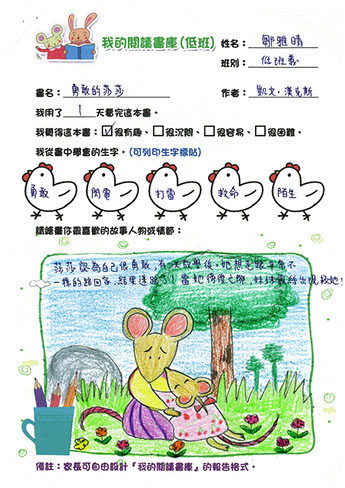 我的閱讀書庫(低班)
姓名:鄒雅晴
班別:低班義
書名:勇敢的莎莎
作者:凱文.漢克斯
我用了1天看完這本書。
我覺得這本書:☑很有趣、☐很沉悶、☐很容易、☐很困難。
我從書中學會的生字。(可列印生字標貼)
勇敢 閃電 打雷 救命 陌生
請繪畫你最喜歡的故事人物或情節:
莎莎認為自己很勇敢,有一天放學後,她想走跟平常不
一樣的路回家,結果迷路了!當她
備註:家長可自由設計『我的閱讀書庫』的報告格式。